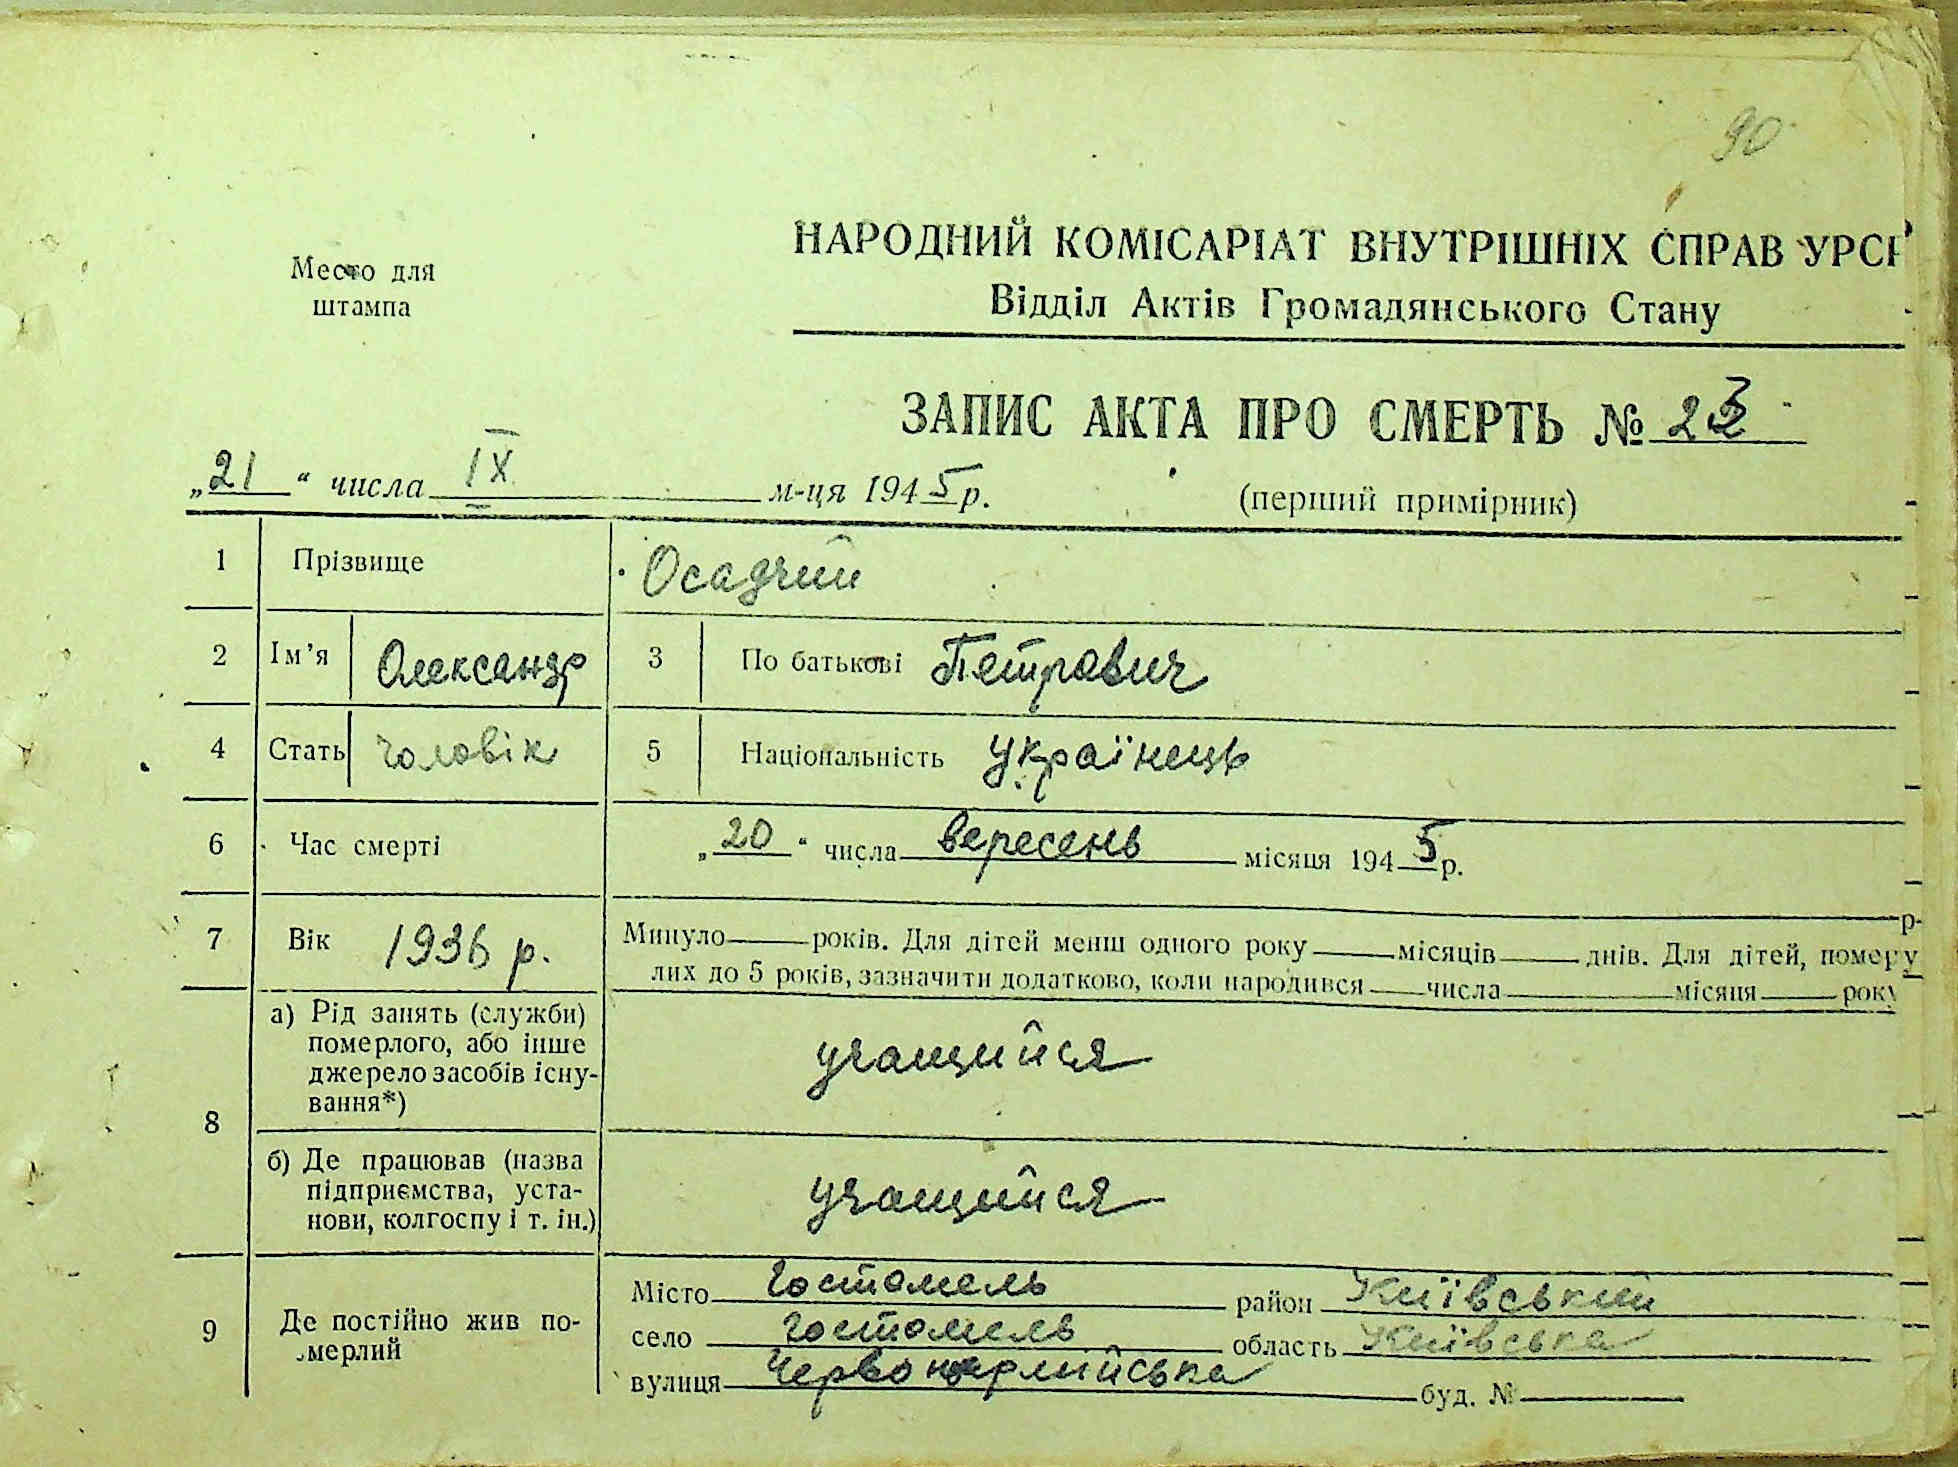 90
Место для
штампа
НАРОДНИЙ КОМІСАРІАТ ВНУТРІШНІХ СПРАВ УРСР
Відділ Актів Громадянського Стану
ЗАПИС АКТА ПРО СМЕРТЬ № 23
„21“ числа IX м-ця 1945 р.
(перший примірник)
1 Прізвище Осадчий
2 Ім’я Олександр 3 По батькові Петрович
4 Стать чоловік 5 Національність Українець
6 Час смерті „20“ числа вересень місяця 1945 р.
7 Вік 1936 р. Минуло років. Для дітей менш одного року місяців днів. Для дітей, померу
лих до 5 років, зазначити додатково, коли народився числа місяця року
р.
8 а) Рід занять (служби)
померлого, або інше
джерело засобів існу-
вання*)
учащийся
б) Де працював (назва
підприємства, уста-
нови, колгоспу і т. ін.)
учащийся
9 Де постійно жив по-
мерлий
Місто Гостомель район Київський
село Гостомель область Київська
вулиця Червоноармійська буд. №